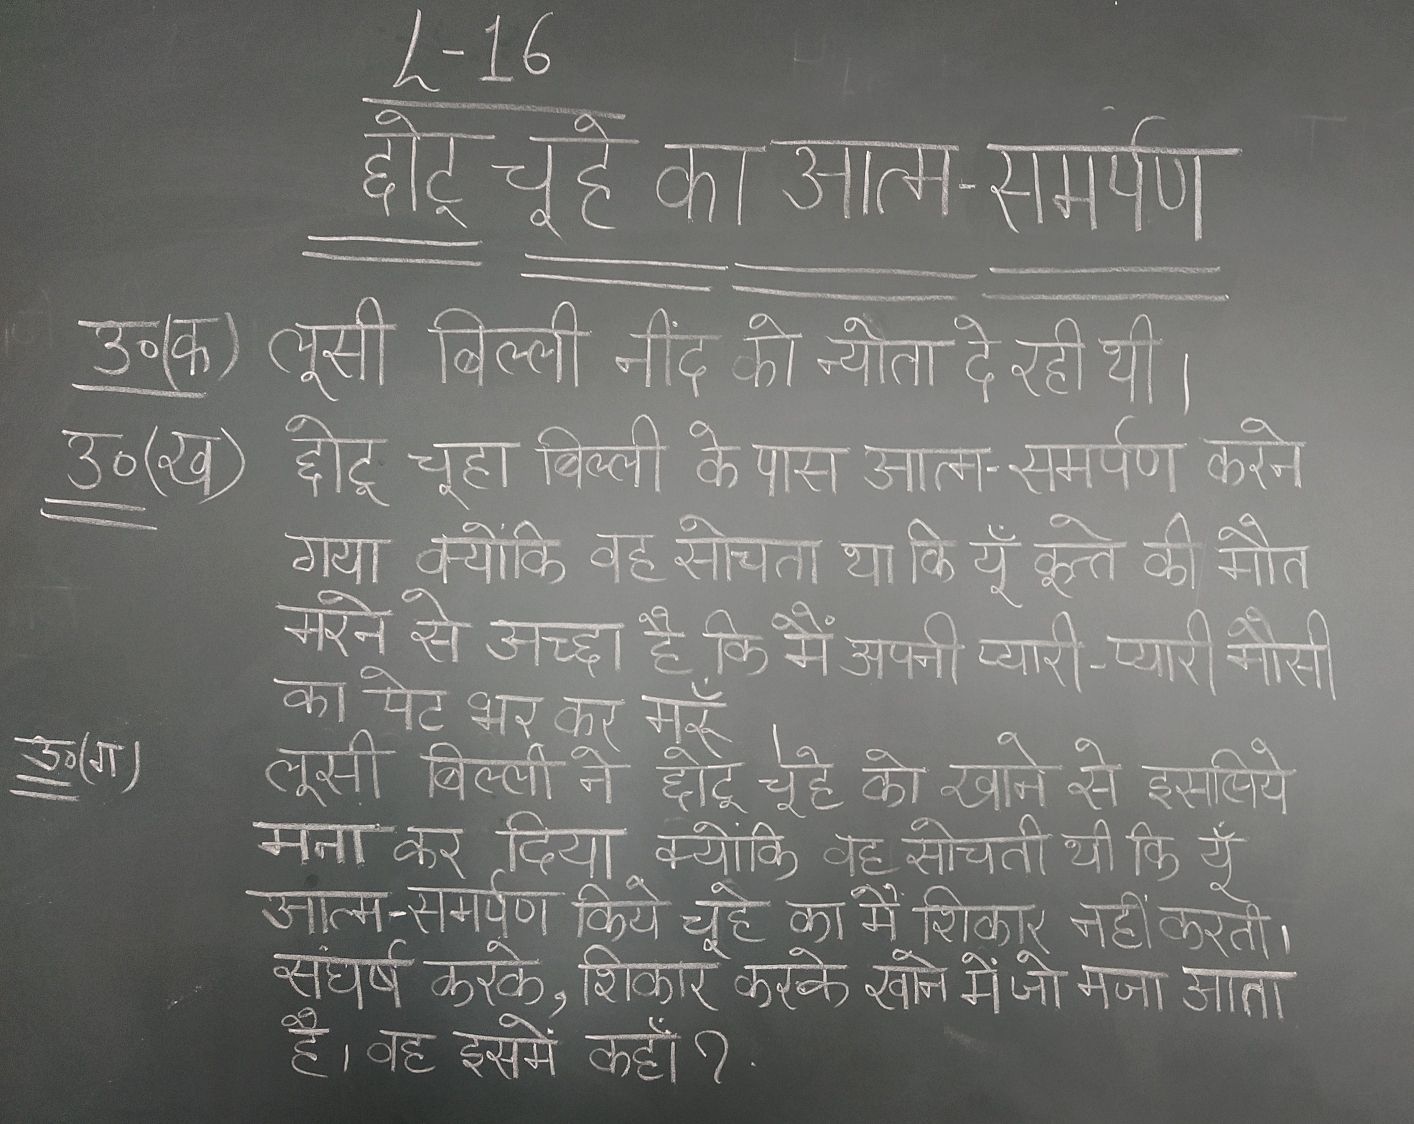 L-16
छोटू चूहे का आत्म-समर्पण
उ०(क) लूसी बिल्ली नींद को न्यौता दे रही थी।
उ०(ख) छोटू चूहा बिल्ली के पास आत्म-समर्पण करने
गया क्योंकि वह सोचता था कि यूँ कूत्ते की मौत
मरने से अच्छा है कि मैं अपनी प्यारी-प्यारी मौसी
का पेट भर कर मरूँ।
उ०(ग) लूसी बिल्ली ने छोटू चूहे को खाने से इसलिये
मना कर दिया क्योंकि वह सोचती थी कि यूँ
आत्म-समर्पण किये चूहे का मैं शिकार नहीं करती।
संघर्ष करके, शिकार करके खाने में जो मजा आता
है। वह इसमें कहाँ?